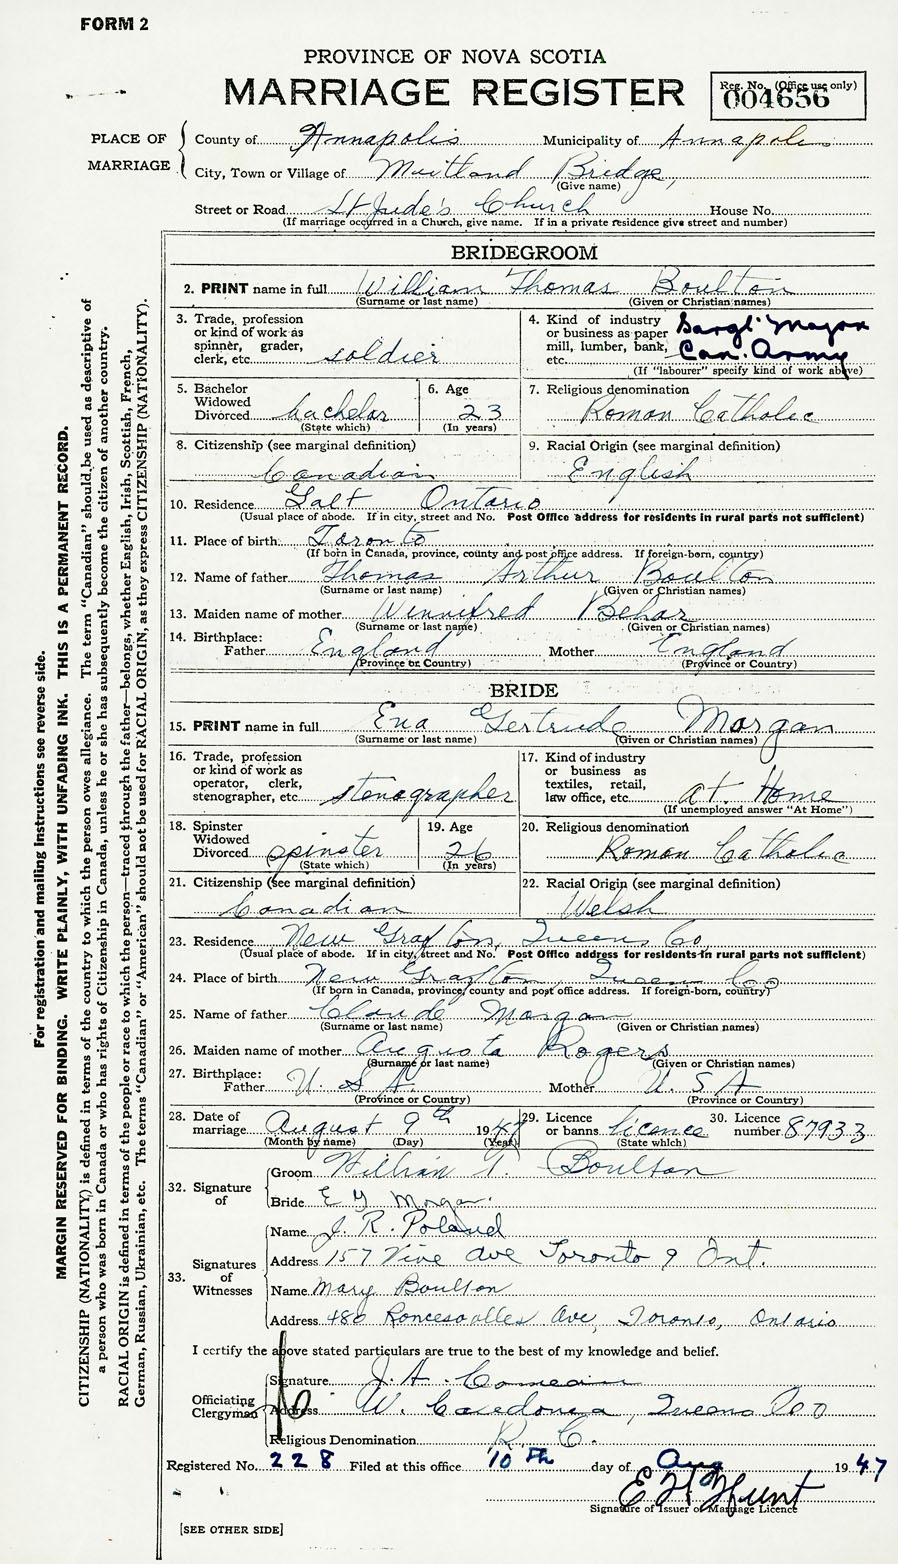 FORM 2
PROVINCE OF NOVA SCOTIA
MARRIAGE REGISTER
Reg. No. (Office use only)
004656
PLACE OF MARRIAGE
County of Annapolis Municipality of Annapolis
City, Town or Village of Maitland Bridge,
(Give name)
Street or Road St Jude's Church House No.
(If marriage occurred in a Church, give name. If in a private residence give street and number)
BRIDEGROOM
2. PRINT name in full William Thomas Boulton
(Surname or last name) (Given or Christian names)
3. Trade, profession or kind of work as spinner, grader, clerk, etc. soldier
4. Kind of industry or business as paper mill, lumber, bank, etc. Sargt Major Can. Army
(If "labourer" specify kind of work above)
5. Bachelor Widowed Divorced bachelor
(State which)
6. Age 23
(In years)
7. Religious denomination Roman Catholic
8. Citizenship (see marginal definition) Canadian
9. Racial Origin (see marginal definition) English
10. Residence Galt Ontario
(Usual place of abode. If in city, street and No. Post Office address for residents in rural parts not sufficient)
11. Place of birth Toronto
(If born in Canada, province, county and post office address. If foreign-born, country)
12. Name of father Thomas Arthur Boulton
(Surname or last name) (Given or Christian names)
13. Maiden name of mother Winnifred Behar
(Surname or last name) (Given or Christian names)
14. Birthplace:
Father England Mother England
(Province or Country) (Province or Country)
BRIDE
15. PRINT name in full Ena Gertrude Morgan
(Surname or last name) (Given or Christian names)
16. Trade, profession or kind of work as operator, clerk, stenographer, etc. stenographer
17. Kind of industry or business as textiles, retail, law office, etc. at Home
(If unemployed answer "At Home")
18. Spinster Widowed Divorced spinster
(State which)
19. Age 26
(In years)
20. Religious denomination Roman Catholic
21. Citizenship (see marginal definition) Canadian
22. Racial Origin (see marginal definition) Welsh
23. Residence New Grafton, Queens Co,
(Usual place of abode. If in city, street and No. Post Office address for residents in rural parts not sufficient)
24. Place of birth New Grafton, Queen Co
(If born in Canada, province, county and post office address. If foreign-born, country)
25. Name of father Claude Morgan
(Surname or last name) (Given or Christian names)
26. Maiden name of mother Augusta Rogers
(Surname or last name) (Given or Christian names)
27. Birthplace:
Father U. S A. Mother U. S A
(Province or Country) (Province or Country)
28. Date of marriage August 9th 1947
(Month by name) (Day) (Year)
29. Licence or banns licence
(State which)
30. Licence number 87933
32. Signature of
Groom William T. Boulton
Bride E G Morgan.
33. Signatures of Witnesses
Name J. R. Poland
Address 157 Vine Ave Toronto 9 Ont.
Name Mary Boulton
Address 480 Roncesvalles Ave, Toronto, Ontario
I certify the above stated particulars are true to the best of my knowledge and belief.
Officiating Clergyman
Signature J. A. Comeau
Address W. Caledonia, Queens Co
Religious Denomination R. C.
Registered No. 228 Filed at this office 10th day of Aug 1947
E H Hunt
Signature of Issuer of Marriage Licence
[SEE OTHER SIDE]
For registration and mailing instructions see reverse side.
MARGIN RESERVED FOR BINDING. WRITE PLAINLY, WITH UNFADING INK. THIS IS A PERMANENT RECORD.
CITIZENSHIP (NATIONALITY) is defined in terms of the country to which the person owes allegiance. The term "Canadian" should be used as descriptive of
a person who was born in Canada or who has rights of Citizenship in Canada, unless he or she has subsequently become the citizen of another country.
RACIAL ORIGIN is defined in terms of the people or race to which the person—traced through the father—belongs, whether English, Irish, Scottish, French,
German, Russian, Ukrainian, etc. The terms "Canadian" or "American" should not be used for RACIAL ORIGIN, as they express CITIZENSHIP (NATIONALITY).